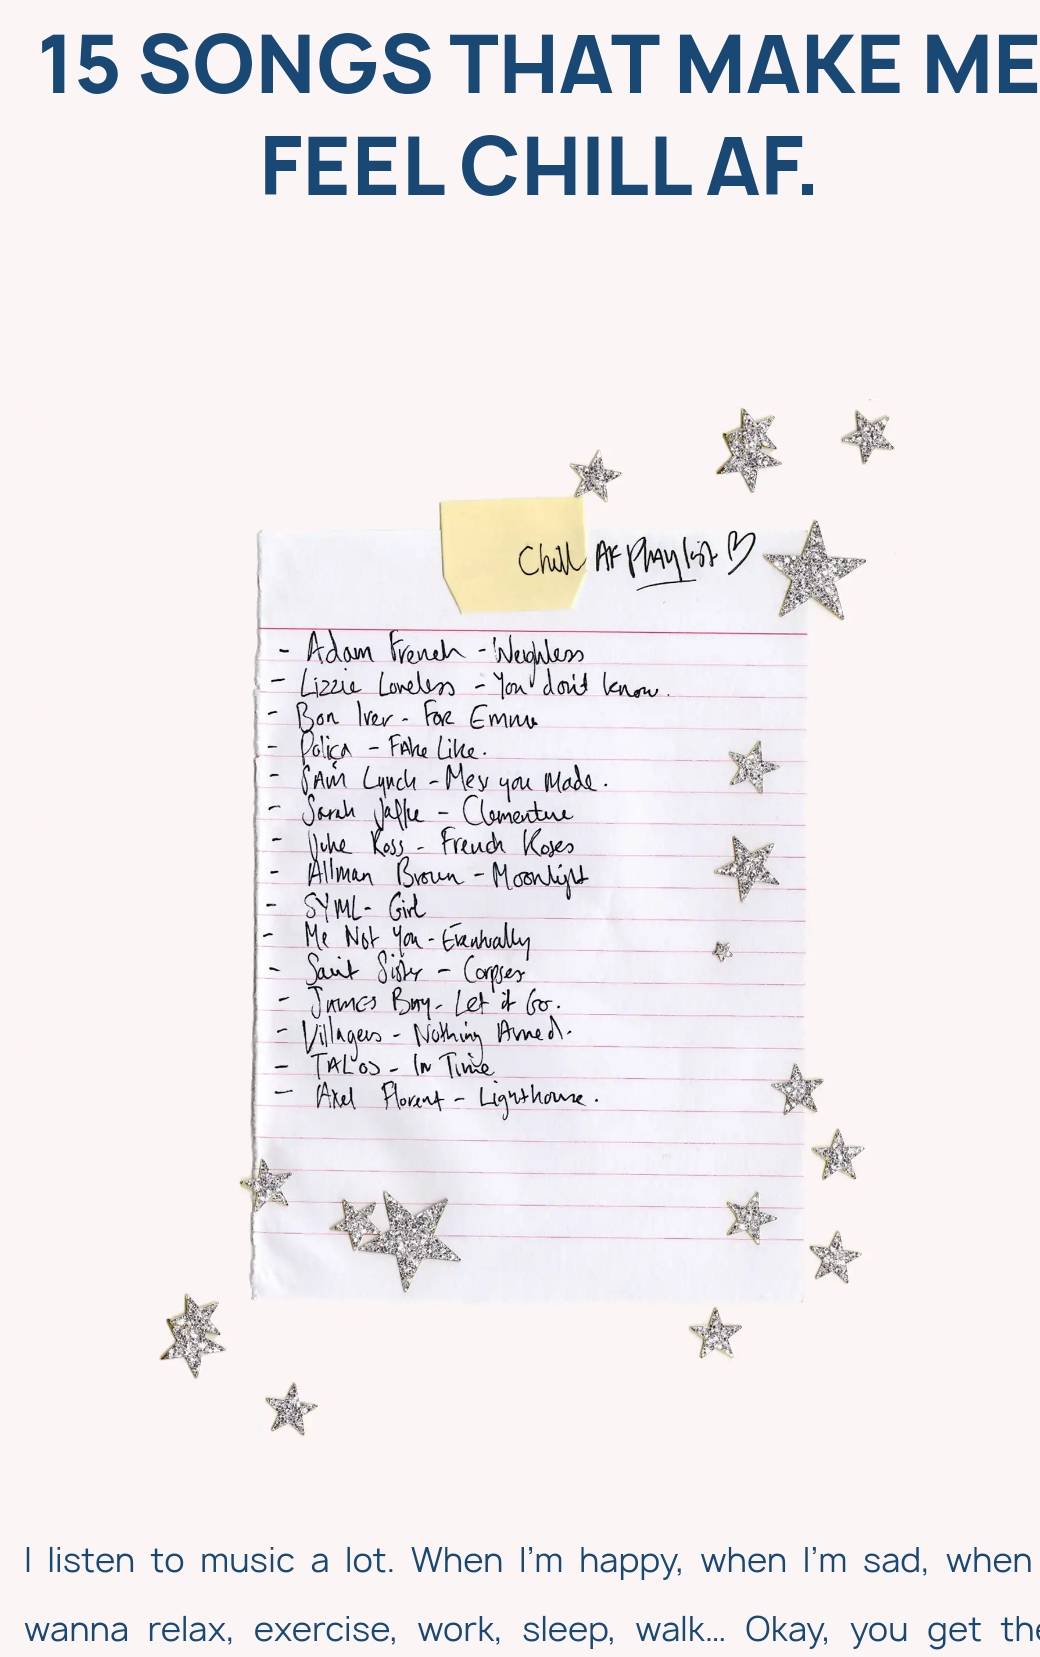 15 SONGS THAT MAKE ME
FEEL CHILL AF.
Chill AF Playlist
- Adam French - Weighless
- Lizzie Loveless - You don't know.
- Bon Iver - For Emma
- Poliça - Fake Like.
- SAM Lynch - you Made.
- Sarah Jaffe - Clementine
- Ross - French Roses
- Allman Brown - Moonlight
- SYML - Girl
- Me Not You - Eventually
- Saint Sister - Corpses
- James Bay - Let it Go.
- Villagers - Nothing Arrived.
- TALOS - In Time
- Axel Florent - Lighthouse.
I listen to music a lot. When I'm happy, when I'm sad, when
wanna relax, exercise, work, sleep, walk... Okay, you get the